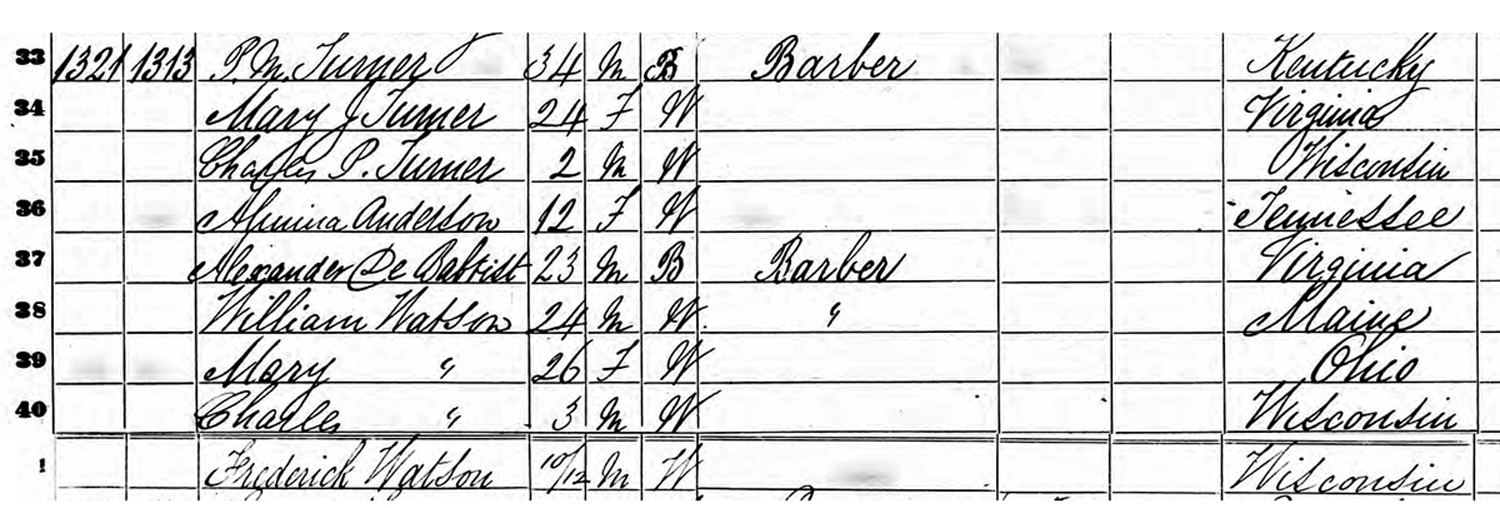 33 1321 1313 P. M. Turner 34 M B Barber Kentucky
34 Mary J Turner 24 F W Virginia
35 Charles P. Turner 2 M W Wisconsin
36 Anderson 12 F W Tennessee
37 Alexander De Babtist 23 M B Barber Virginia
38 William Watson 24 M W. " Maine
39 Mary " 26 F W Ohio
40 Charles " 3 M W Wisconsin
1 Frederick Watson 10/12 M W Wisconsin